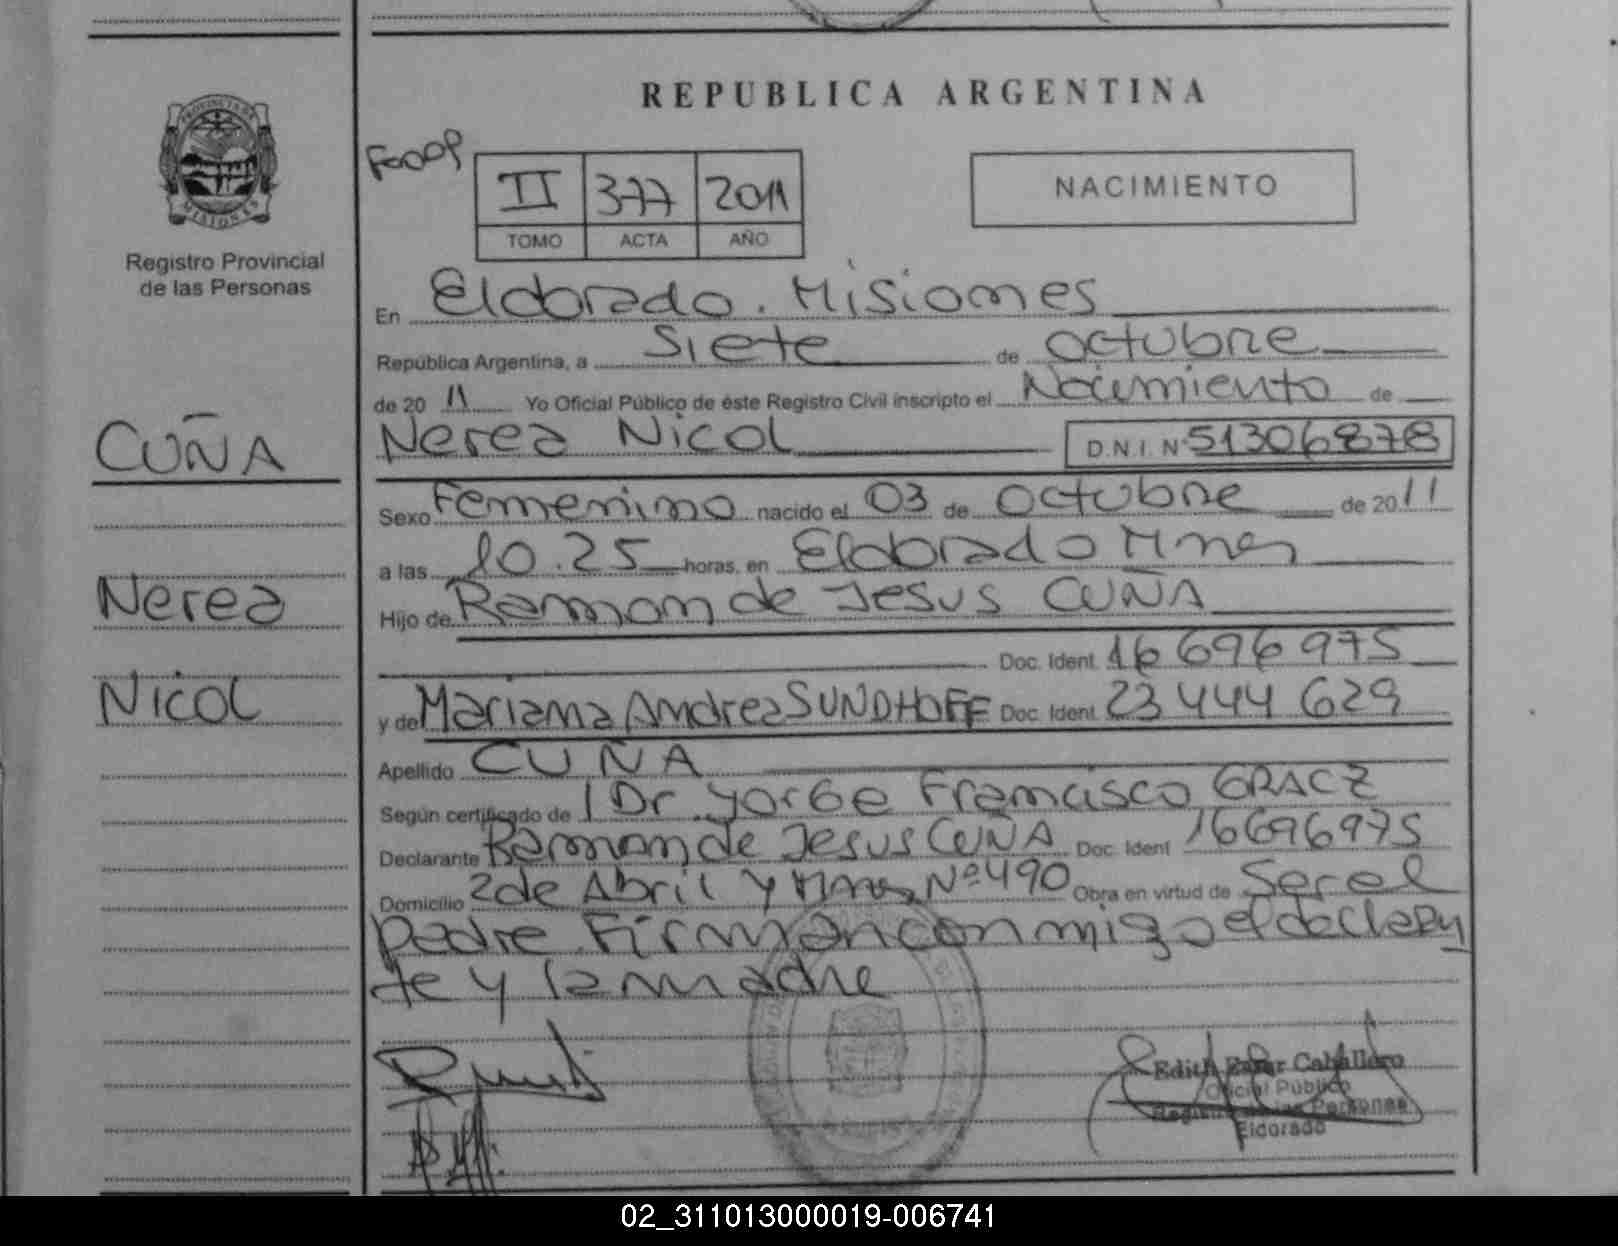 REPUBLICA ARGENTINA
PROVINCIA DE
MISIONES
Registro Provincial
de las Personas
II 377 2011
TOMO ACTA AÑO
NACIMIENTO
En Eldorado. Misiones
República Argentina, a Siete de octubre
de 20 11 Yo Oficial Público de éste Registro Civil inscripto el Nacimiento de
CUÑA
Nerea Nicol D.N.I. Nº 51306878
Sexo Femenino nacido el 03 de Octubre de 2011
a las 10.25 horas, en Eldorado Mnes
Nerea
Hijo de Ramon de Jesus CUÑA
Doc. Ident. 16 696 975
Nicol
y de Mariana Andrea SUNDHOFF Doc. Ident. 23 444 629
Apellido CUÑA
Según certificado de Dr. Jorge Francisco GRACZ
Declarante Ramon de Jesus CUÑA Doc. Ident 16696975
Domicilio 2 de Abril y Mnes Nº 490 Obra en virtud de Ser el
Padre. Firman conmigo el declaran
te y la madre
Edith Caballero
Oficial Público
Personas
Eldorado
02_311013000019-006741